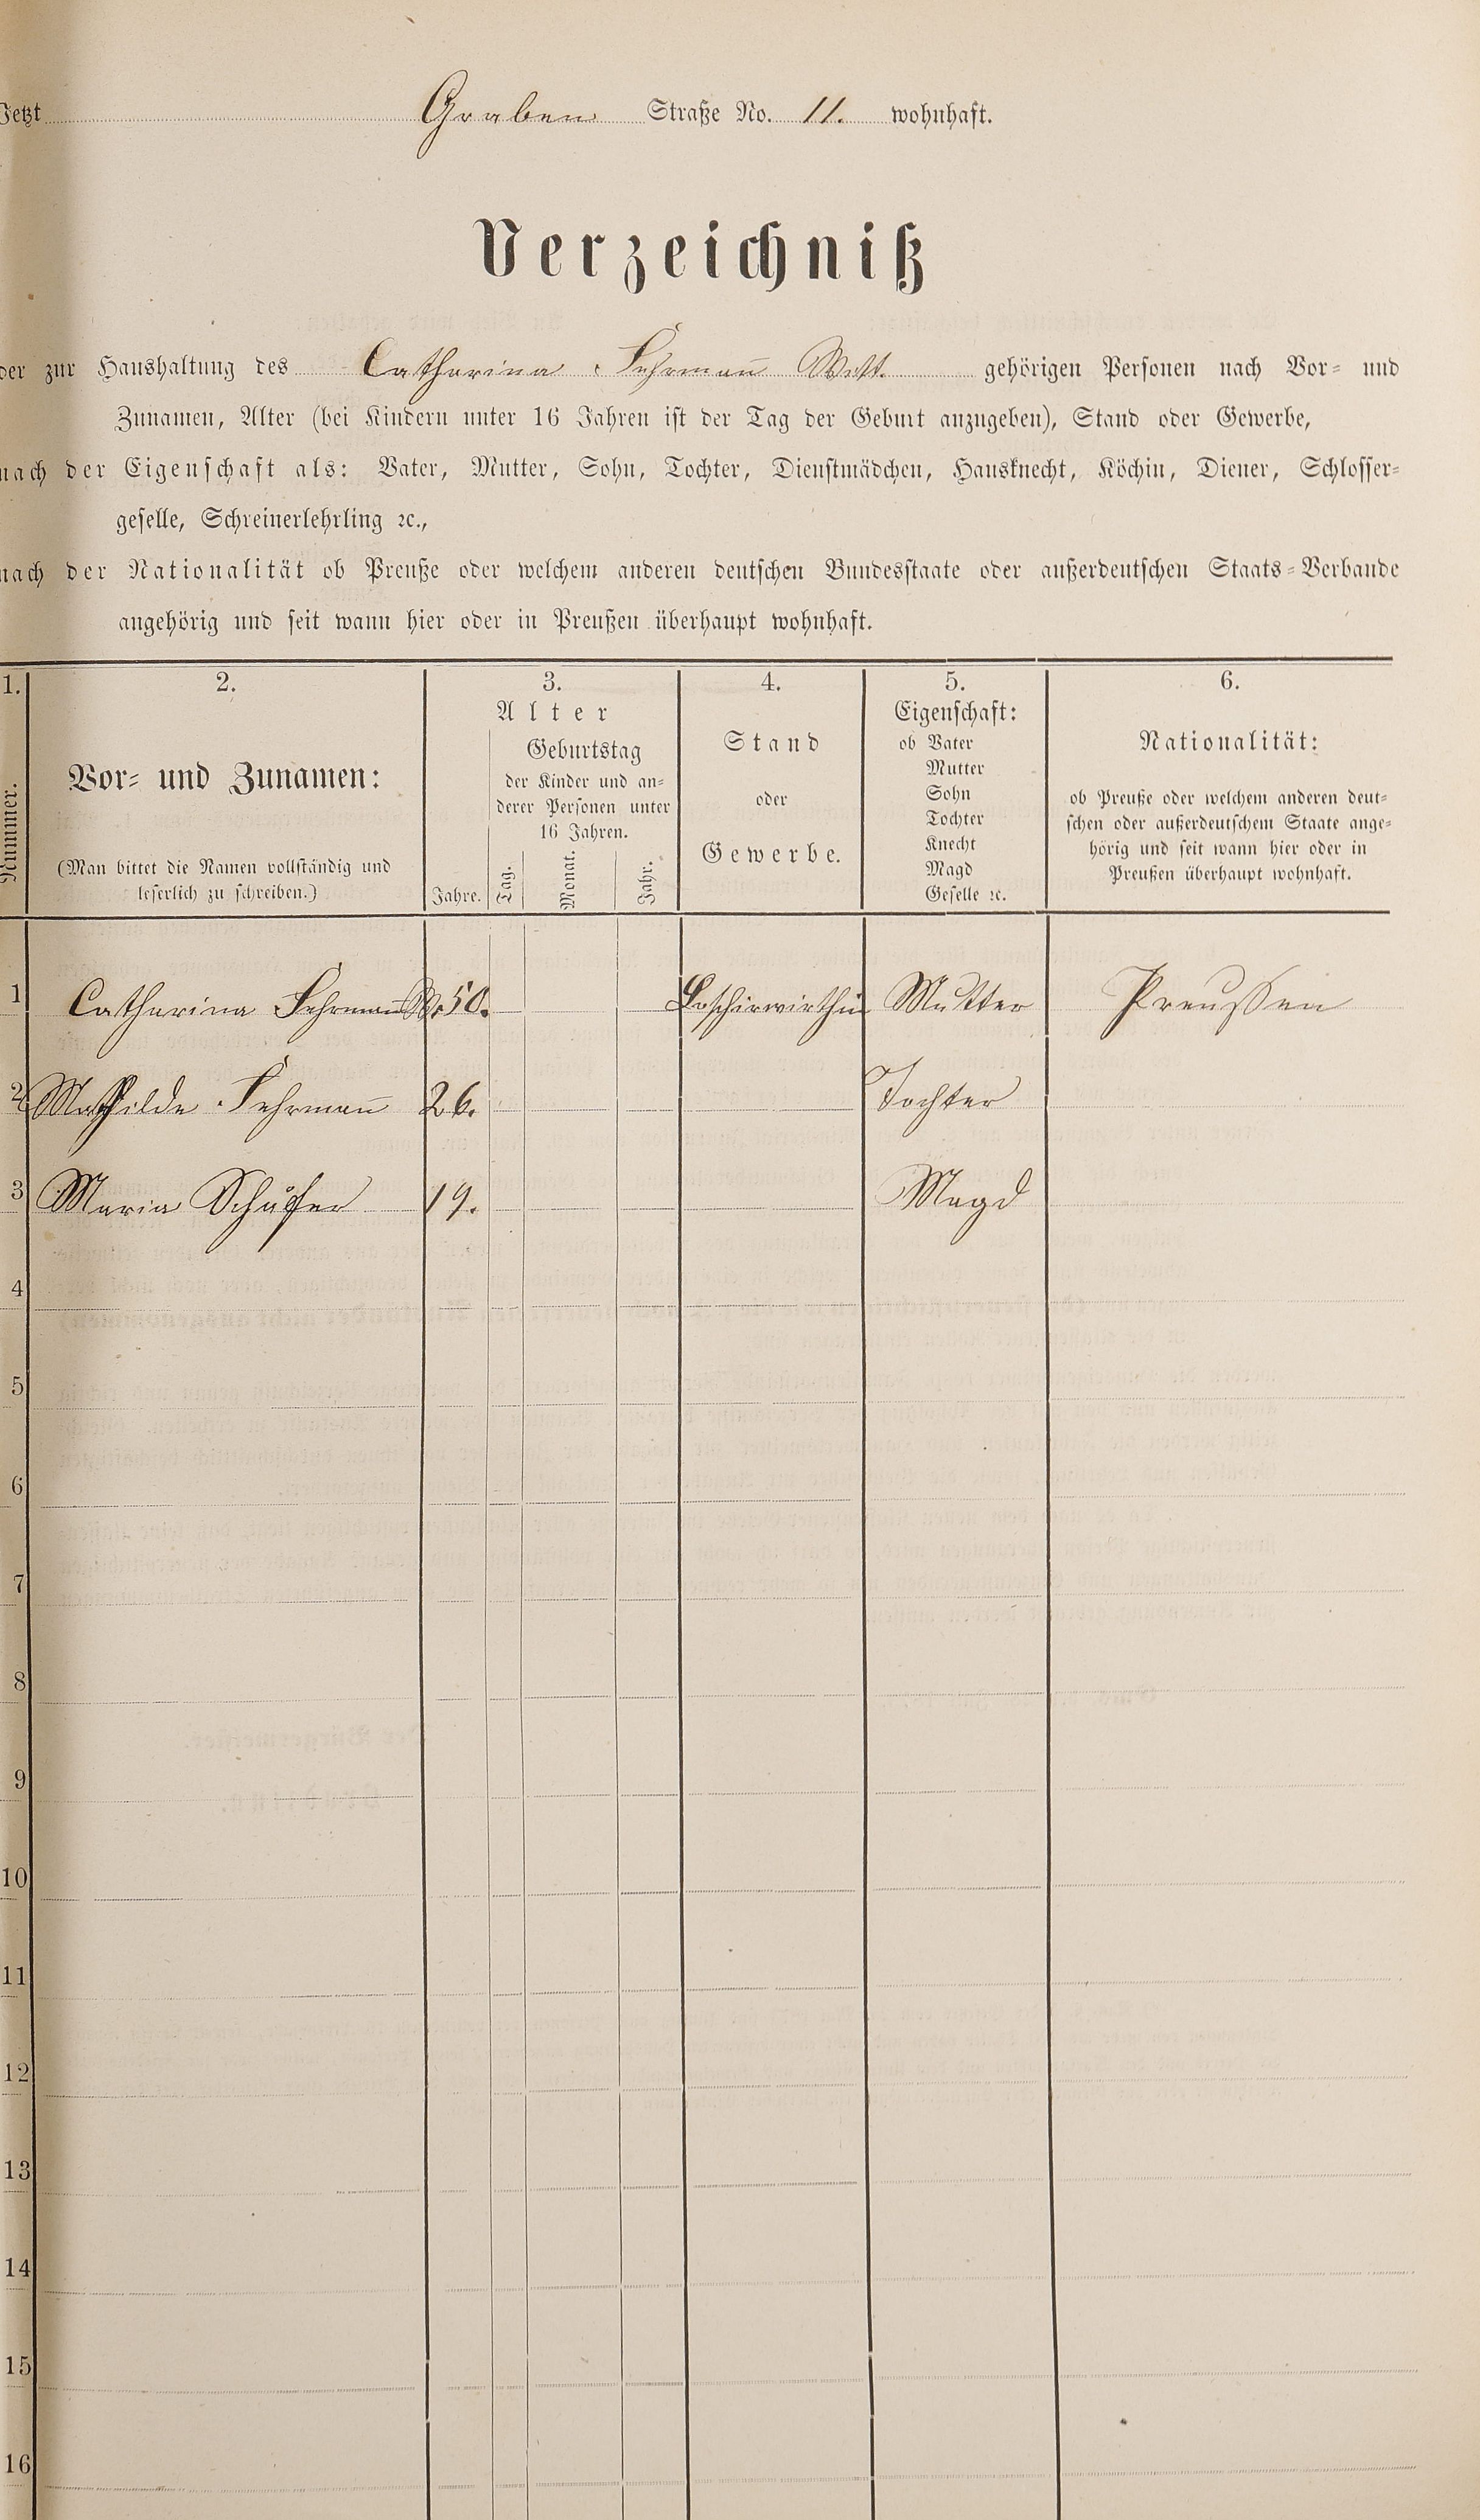 Jetzt Graben Straße No. 11. wohnhaft.
Verzeichniß
der zur Haushaltung des Catharina Fehrman̄ Wtt. gehörigen Personen nach Vor- und
Zunamen, Alter (bei Kindern unter 16 Jahren ist der Tag der Geburt anzugeben), Stand oder Gewerbe,
nach der Eigenschaft als: Vater, Mutter, Sohn, Tochter, Dienstmädchen, Hausknecht, Köchin, Diener, Schlosser-
geselle, Schreinerlehrling ꝛc.,
nach der Nationalität ob Preuße oder welchem anderen deutschen Bundesstaate oder außerdeutschen Staats-Verbande
angehörig und seit wann hier oder in Preußen überhaupt wohnhaft.
1. 2. 3. 4. 5. 6.
Nummer.
Vor- und Zunamen:
(Man bittet die Namen vollständig und
leserlich zu schreiben.)
Alter
Geburtstag
der Kinder und an-
derer Personen unter
16 Jahren.
Jahre. Tag. Monat. Jahr.
Stand
oder
Gewerbe.
Eigenschaft:
ob Vater
Mutter
Sohn
Tochter
Knecht
Magd
Geselle ꝛc.
Nationalität:
ob Preuße oder welchem anderen deut-
schen oder außerdeutschem Staate ange-
hörig und seit wann hier oder in
Preußen überhaupt wohnhaft.
1 Catharina Fehrman̄ 50. Loschirwirthin Mutter Preussen
2 Mathilde Fehrman̄ 26. Tochter
3 Maria Schäfer 19. Magd
4
5
6
7
8
9
10
11
12
13
14
15
16